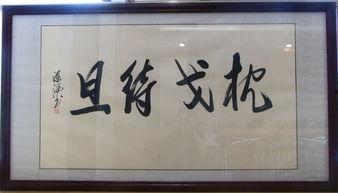 枕戈待旦